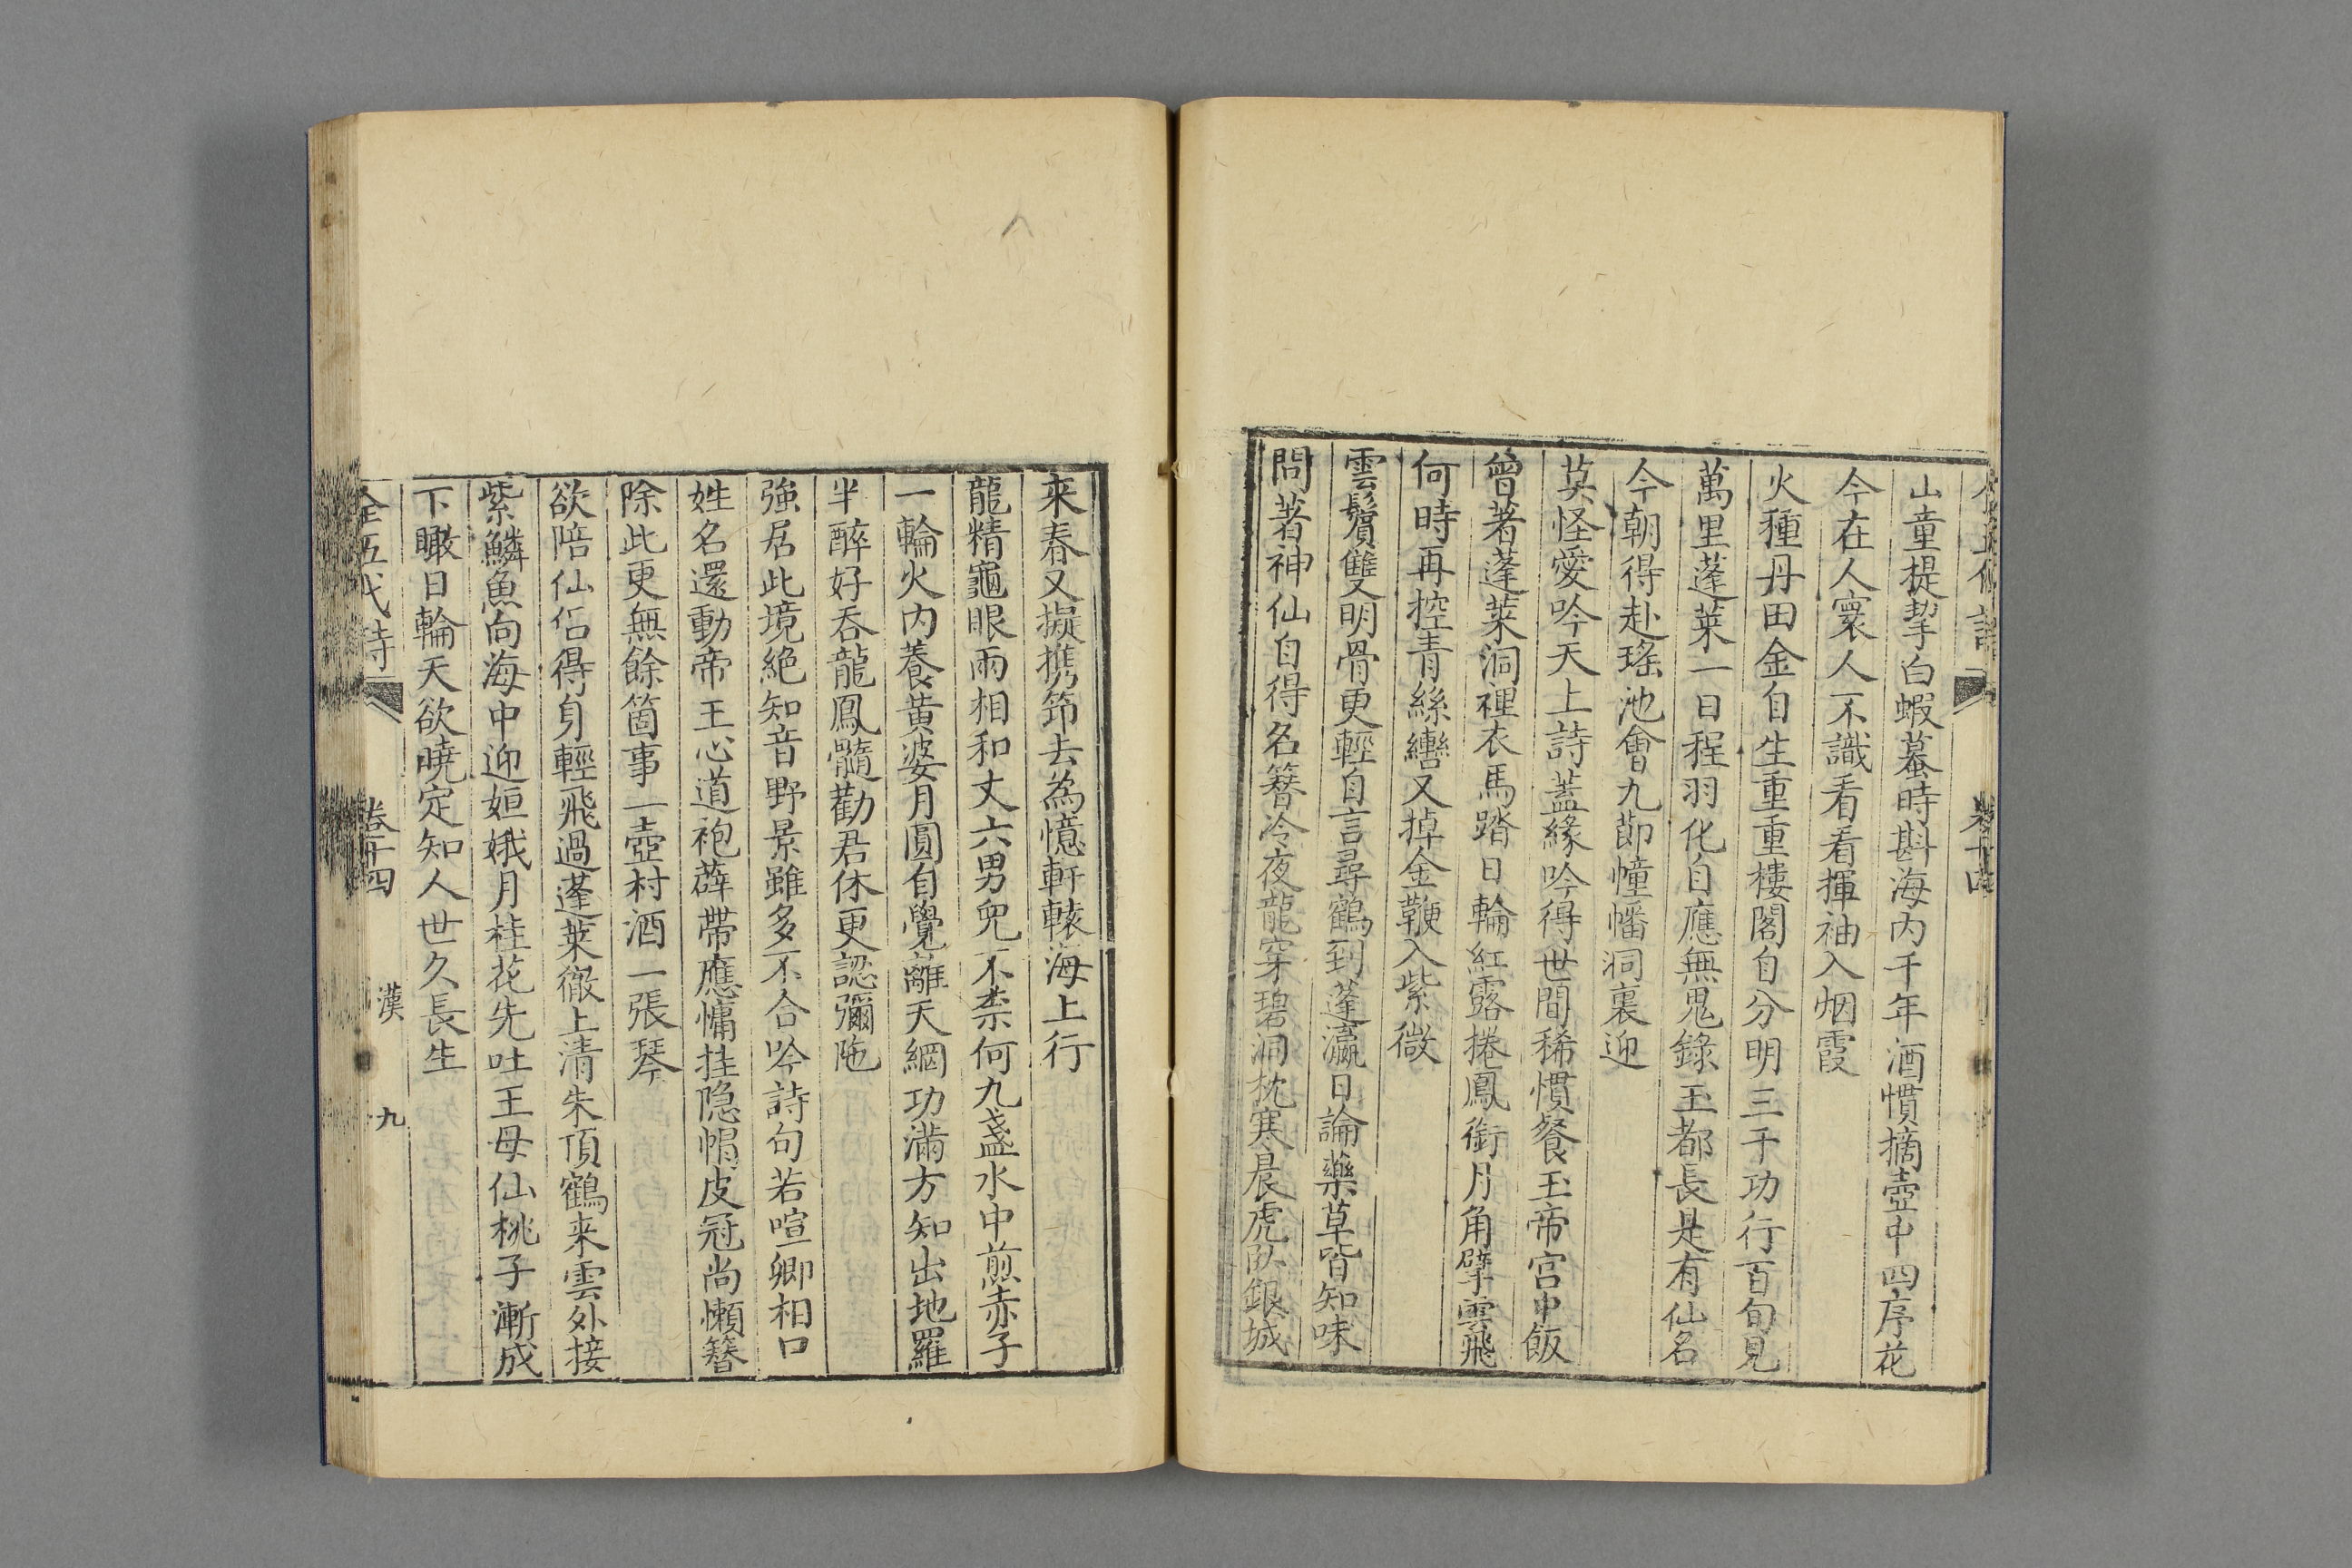 山童提挈白蝦蟇時斟海内千年酒慣摘壺中四序花
今在人寰人不識看看揮袖入烟霞
火種丹田金自生重重樓閣自分明三千功行百旬見
萬里蓬萊一日程羽化自應無鬼錄玉都長是有仙名
今朝得赴瑤池會九莭幢幡洞裏迎
莫怪愛吟天上詩蓋緣吟得世間稀慣餐玉帝宫中飯
曾著蓬萊洞裡衣馬踏日輪紅露捲鳳銜月角擘雲飛
何時再控青絲轡又掉金鞭入紫微
雲鬢雙明骨更輕自言尋鶴到蓬瀛日論藥草皆知味
問著神仙自得名簪冷夜龍穿碧洞枕寒晨虎臥銀城
来春又擬携筇去為憶軒轅海上行
龍精龜眼兩相和丈六男兒不柰何九盞水中煎赤子
一輪火内養黄婆月圓自覺離天網功滿方知出地羅
半醉好吞龍鳳髓勸君休更認彌陁
強居此境絶知音野景雖多不合吟詩句若喧卿相口
姓名還動帝王心道袍薜帶應慵挂隐帽皮冠尚懶簪
除此更無餘箇事一壺村酒一張琴
欲陪仙侣得身輕飛過蓬萊徹上清朱頂鶴来雲外接
紫鱗魚向海中迎姮娥月桂花先吐王母仙桃子漸成
下瞰日輪天欲曉定知人世久長生
全五代詩 卷十四 漢 九